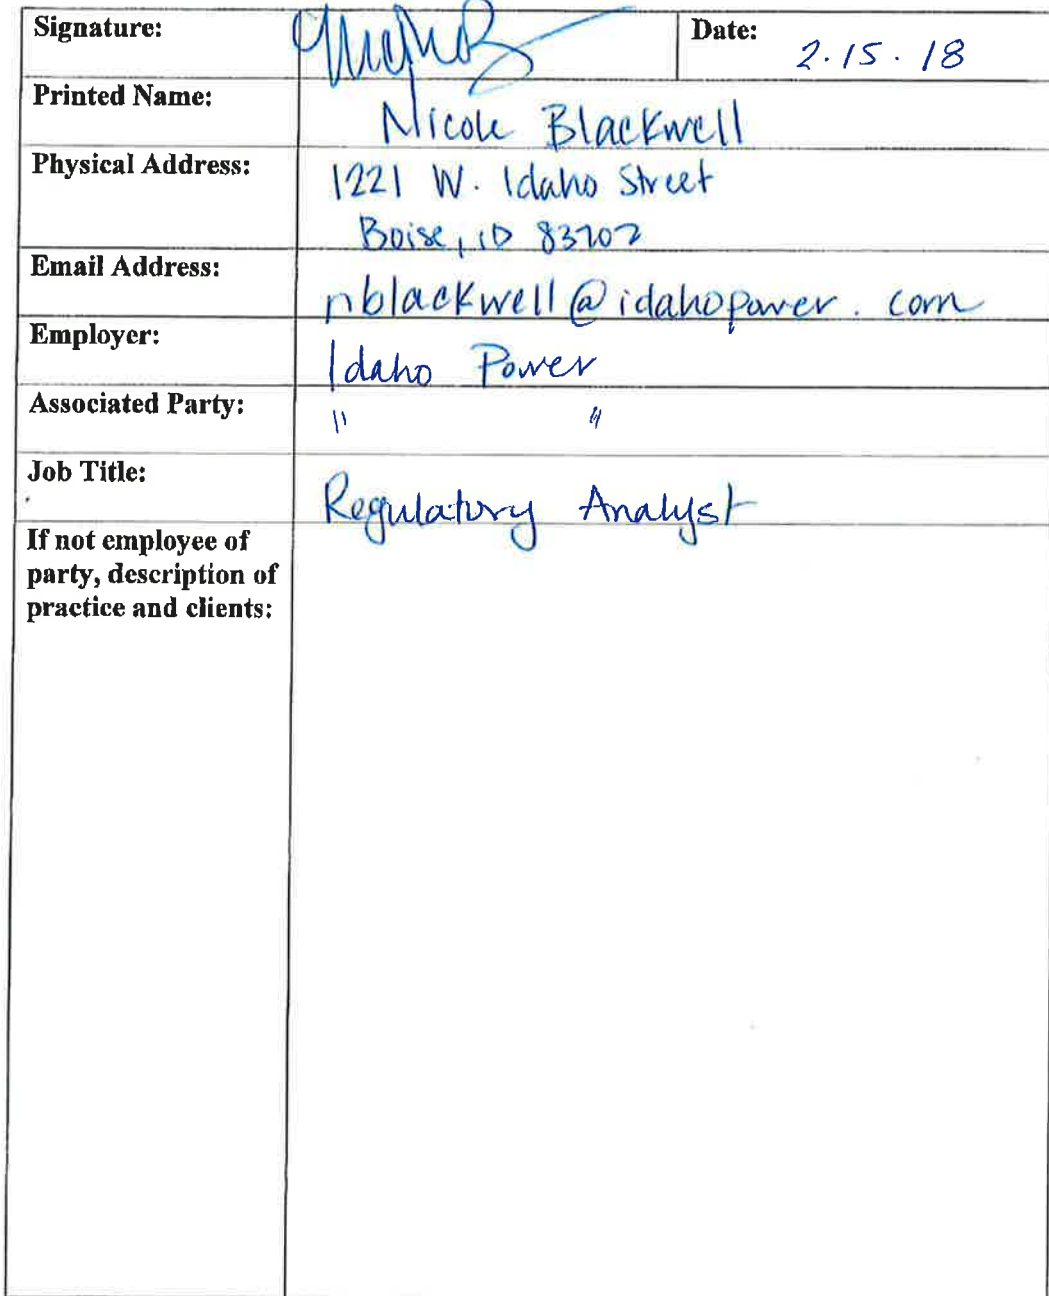 Signature: Date: 2.15.18
Printed Name: Nicole Blackwell
Physical Address: 1221 W. Idaho Street
Boise, ID 83702
Email Address: nblackwell@idahopower.com
Employer: Idaho Power
Associated Party: " "
Job Title: Regulatory Analyst
If not employee of
party, description of
practice and clients: